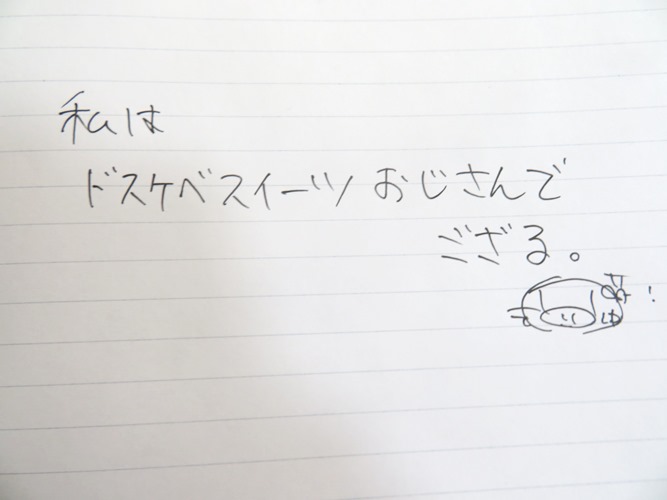 私は
ドスケベスイーツおじさんで
ござる。